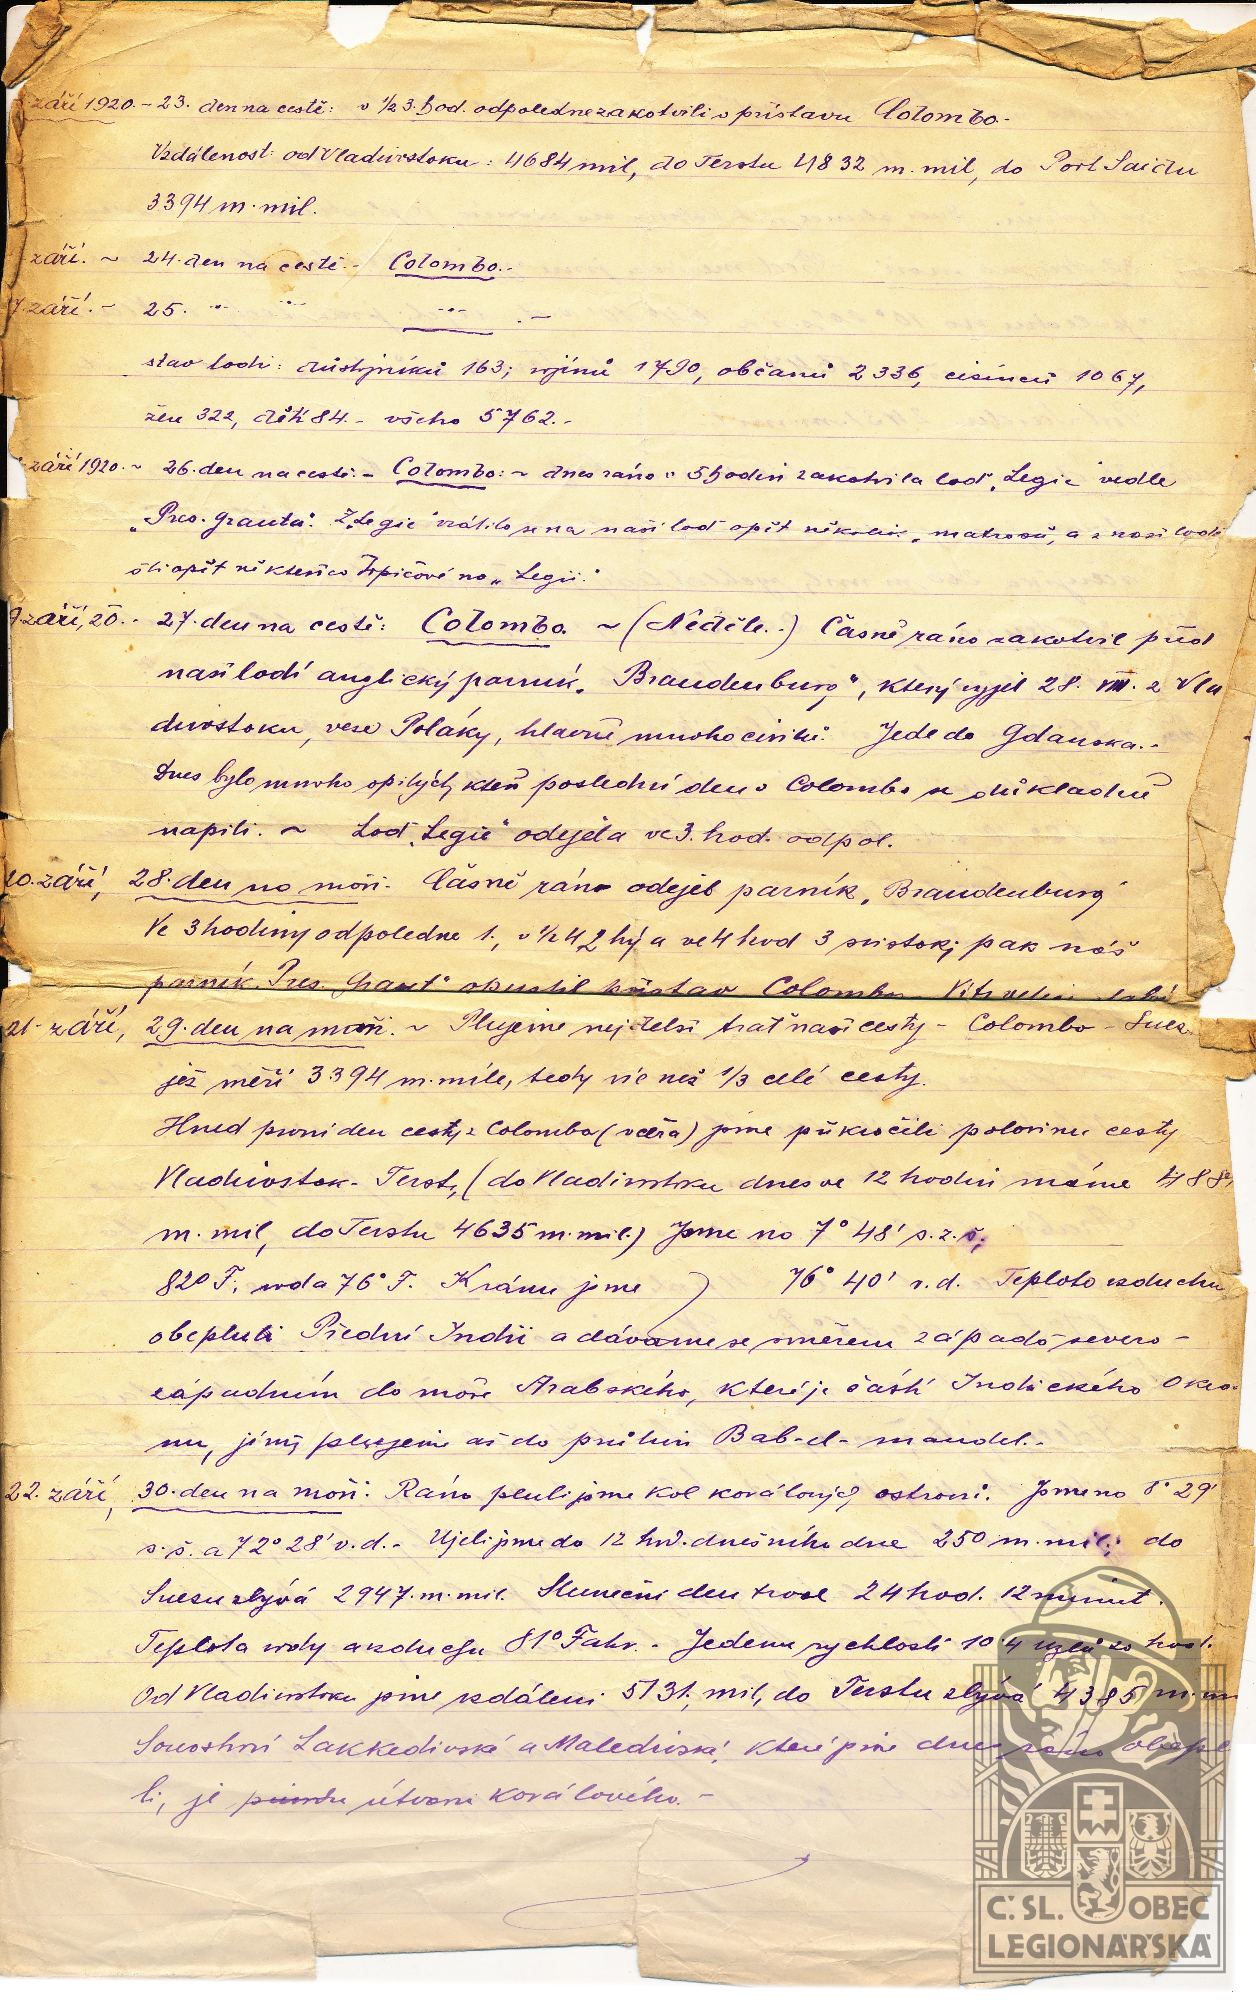 září 1920. – 23. den na cestě: v ½ 3. hod. odpoledne zakotvili v přístavu Colombo.-
Vzdálenost: od Vladivostoku: 4684 mil, do Terstu 4832 m. mil, do Port Saidu
3394 m. mil.
září. ~ 24. den na cestě.- Colombo.-
7. září. – 25. " " " . –
stav lodi: důstojníků 163; vojínů 1790, občanů 2336, cizinců 1067,
žen 322, dětí 84. – všeho 5762.-
září 1920. ~ 26. den na cestě: – Colombo: ~ dnes ráno v 5 hodin zakotvila loď „Legie" vedle
„Pres. Granta". Z „Legie" vrátilo se na naší loď opět několik „matrosů, a z naší lodi
šli opět někteří co topičové na „Legii."
9. září, 20. - 27. den na cestě: Colombo. ~ (Neděle. -) Časně ráno zakotvil před
naší lodí anglický parník „Brandenburg", který vyjel 28. VIII. z Vla
divostoku, veze Poláky, hlavně mnoho civilů. Jede do Gdanska.-
Dnes bylo mnoho opilých, kteří poslední den v Colombo se důkladně
napili. ~ Loď „Legie" odejela ve 3. hod. odpol.
20. září, 28. den na moři. Časně ráno odejel parník „Brandenburg"
Ve 3 hodiny odpoledne 1., v ½ 4 2hý a ve 4 hod 3 pak náš
parník „Pres. Grant" opustil přístav Colombo.
21. září, 29. den na moři. ~ Plujeme nejdelší trať naší cesty – Colombo – Suez
jež měří 3394 m. míle, tedy víc než 1/3 celé cesty.
Hned první den cesty z Colomba (včera) jsme překročili polovinu cesty
Vladivostok – Terst, (do Vladivostoku dnes ve 12 hodin máme 488
m. mil, do Terstu 4635 m. mil.) Jsme na 7° 48' s. z. š.,
82° F, voda 76° F. K ránu jsme ) 76° 40' v. d. Teplota vzduchu
obepluli Přední Indii a dáváme se směrem západo severo –
západním do moře Arabského, které je částí Indického Okeá
nu, jímž plujeme až do průlivu Bab-el-mandeb.-
22. září, 30. den na moři: Ráno pluli jsme kol korálových ostrovů. Jsme na 8° 29'
s. š. a 72° 28' v. d. – Ujeli jsme do 12 hod. dnešního dne 250 m. mil; do
Suezu zbývá 2947. m. mil. Sluneční den trval 24 hod. 12 minut.
Teplota vody a vzduchu 81° Fahr. – Jedeme rychlostí 10.4 uzlů za hod.
Od Vladivostoku jsme vzdáleni 5131. mil, do Terstu zbývá 4385 m. m
Souostroví Lakkedivské a Maledivské, které jsme dnes ráno obepl
li, je původu útvaru korálového. –
Č. SL. OBEC
LEGIONÁŘSKÁ